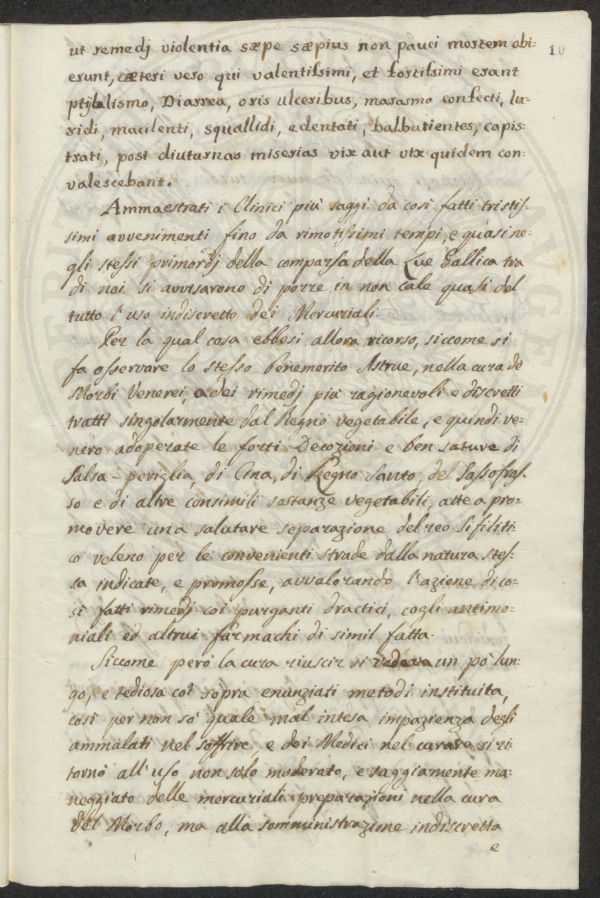 10
ut remedj violentia sæpe sæpius non pauci mortem obi=
erunt, cæteri vero qui valentissimi, et fortissimi erant
ptijalismo, Diarrea, oris ulceribus, marasmo confecti, lu=
ridi, macilenti, squallidi, edentati, balbutientes, capis=
trati, post diuturnas miserias vix aut vix quidem con=
valescebant.
Ammaestrati i Clinici più saggi da così fatti tristis=
simi avvenimenti fino da rimotissimi tempi, e quasi ne=
gli stessi primordj della comparsa della Lue Gallica tra
di noi si avvisarono di porre in non cale quasi del
tutto l'uso indiscretto dei Mercuriali.
Per la qual cosa ebbesi allora ricorso, siccome si
fa osservare lo stesso benemerito Astruc, nella cura de
Morbi Venerei, a dei rimedj più ragionevoli e discretti
tratti singolarmente dal Regno vegetabile, e quindi ve=
nero adoperate le forti Decozioni e ben sature di
Salsa-peviglia, di Cina, di Legno Santo, del Sassofras=
so e di altre consimili sostanze vegetabili, atte a pro=
movere una salutare separazione del reo Sifiliti=
co veleno per le convenienti strade dalla natura stes=
sa indicate, e promosse, avvalorando l'azione di co=
sì fatti rimedj coi purganti dractici, cogli antimo=
niali ed altrui farmachi di simil fatta.
Siccome però la cura riuscir si vedeva un pò lun=
go, e tediosa coi sopra enunziati metodi instituita,
così per non sò quale mal intesa impazienza degli
ammalati nel soffrire, e dei Medici nel curare si ri
tornò all'uso non solo moderato, e saggiamente ma=
neggiato delle mercuriali preparazioni nella cura
del Morbo, ma alla somministrazione indiscretta
e